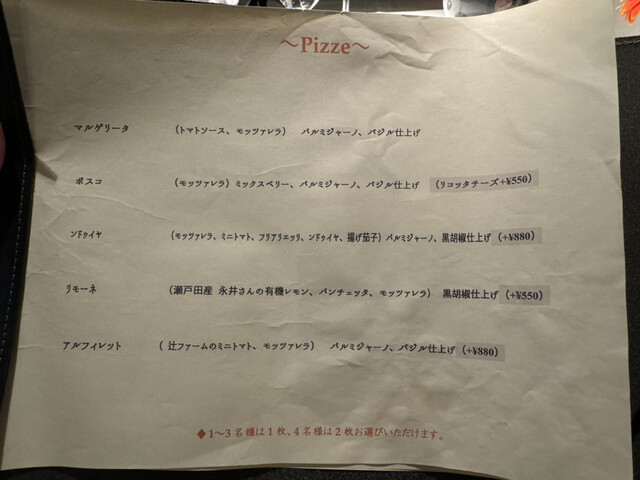 ～Pizze～
マルゲリータ （トマトソース、モッツァレラ） パルミジャーノ、バジル仕上げ
ボスコ （モッツァレラ）ミックスベリー、パルミジャーノ、バジル仕上げ （リコッタチーズ+¥550）
ンドゥイヤ （モッツァレラ、ミニトマト、フリアリエッリ、ンドゥイヤ、揚げ茄子）パルミジャーノ、黒胡椒仕上げ（+¥880）
リモーネ （瀬戸田産 永井さんの有機レモン、パンチェッタ、モッツァレラ） 黒胡椒仕上げ（+¥550）
アルフィレット （ 辻ファームのミニトマト、モッツァレラ） パルミジャーノ、バジル仕上げ（+¥880）
◆1～3名様は1枚、4名様は2枚お選びいただけます。